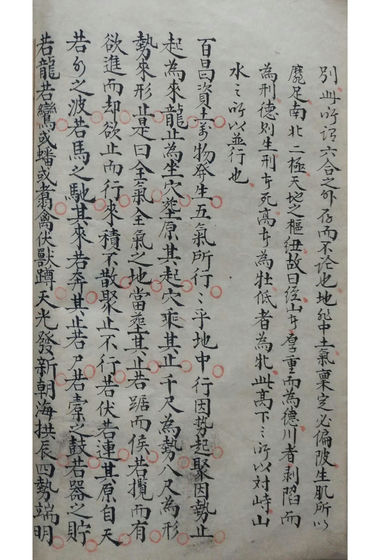 別此所謂六合之外存而不論也地非中土氣稟定必偏陂生肌所以
足南北二極天地之樞紐故曰經山者厚重而為德川者剥陷而
為刑德則生刑者死高者為牡低者為牝此高下之所以對峙山
水之所以並行也
百昌資土萬物發生五氣所行〻乎地中行因勢起聚因勢止
起為來龍止為坐穴塟原其起穴乘其止千尺為勢八尺為形
勢來形止是曰全氣全氣之地當塟其止若踞而候若攬而有
欲進而却欲止而行來積不散聚止不行若伏若連其原自天
若水之波若馬之馳其來若奔其止若尸若橐之鼓若器之貯
若龍若鸞或蟠或翥禽伏獸蹲天光發新朝海拱辰四勢端明